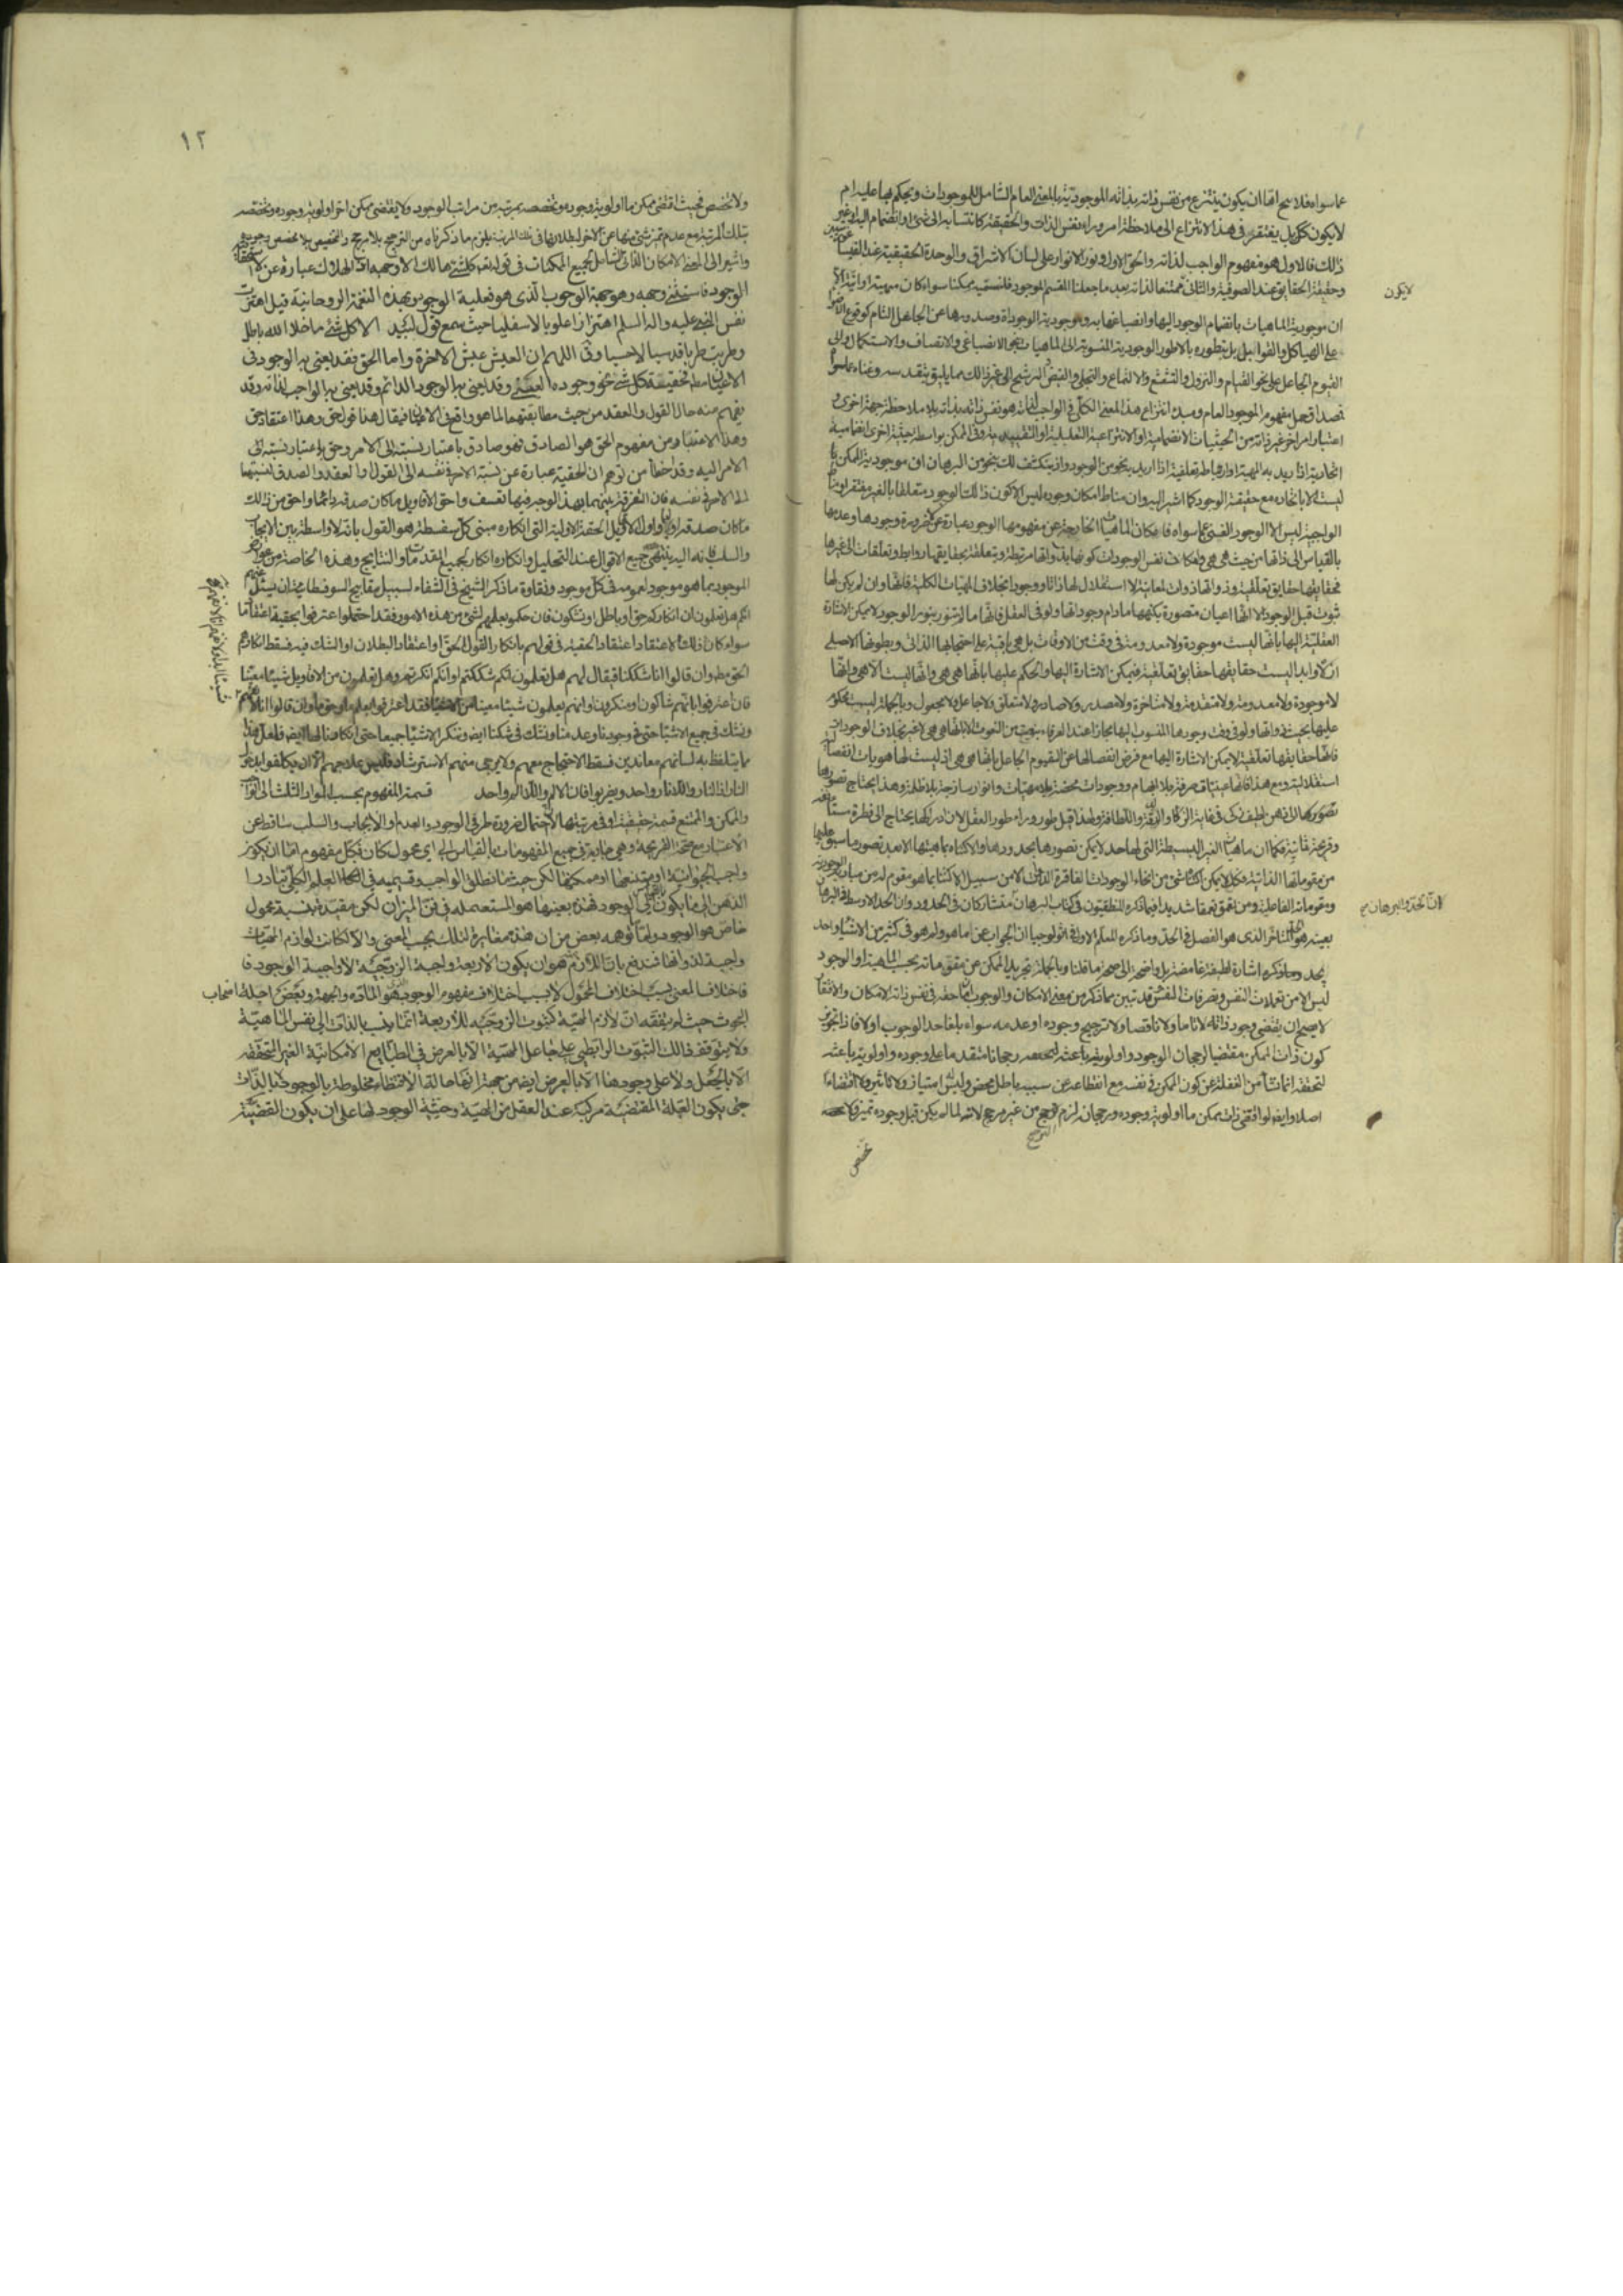 عما سواه فلا يخ اما ان يكون ينتزع من نفس ذاته بذاته الموجودية بالمعنى العام الشامل للموجودات ويحكم بها عليه ام
لا يكون كك بل يفتقر في هذا الانتزاع الى ملاحظة امر وراء نفس الذات والحقيقة كانتسابه الى شئ او انضمام اليه او غير
ذلك فالاول هو مفهوم الواجب لذاته والحق الاول ونور الانوار على لسان الاشراق والوحدة الحقيقية عند
وحقيقة الحقايق عند الصوفية والثاني ممتنعا لذاته بعد ما جعلنا المقسم الموجود فلنسميه ممكنا سواء كان مهية او انية الا
لا يكون
ان موجودية الماهيات بانضمام الوجود اليها وانصباغها به وموجودية الوجودات بصدورها عن الجاعل التام كوقوع
على الهياكل والقوابل بل بتطوره بالاطوار الوجودية المنسوبة الى الماهيات بنحو الانصباغ والاتصاف والاستكمال والى
القيوم الجاعل على نحو القيام والنزول والتشعشع والالتماع والتجلي والفيض والترشح الى غير ذلك مما يليق بتقدسه وغناه عما سواه
فمصداق حمل مفهوم الموجود العام ومبدء انتزاع هذا المعنى الكلي في الواجب لذاته هو نفس ذاته بذاته بلا ملاحظة جهة اخرى و
اعتبار امر اخر غير ذاته من الحيثيات الانضمامية او الانتزاعية التعليلية او التقييدية وفي الممكن بواسطة حيثية اخرى انضمامية
اتحادية اذا اريد به المهية او ارتباطية تعلقية اذا اريد به نحو من الوجود واذ ينكشف لك بنحو من البرهان ان موجودية الممكن
ليست الا باتحاده مع حقيقة الوجود كما اشير اليه وان مناط امكان وجوده ليس الا كون ذلك الوجود متعلقا بالغير مفتقرا
الواجبية ليس الا الوجود الغني عما سواه فامكان الماهيات الخارجة عن مفهومها الوجود عبارة عن لا ضرورة وجودها وعدمها
بالقياس الى ذاتها من حيث هي هي وامكان نفس الوجودات كونها بذواتها مرتبطة ومتعلقة بحقايقها روابط وتعلقات الى غيرها
فحقايقها حقايق تعلقية وذواتها ذوات لمعانية لا استقلال لها ذاتا ووجودا بخلاف المهيات الكلية فانها وان لم يكن لها
ثبوت قبل الوجود الا انها اعيان متصورة بكنهها ما دام وجوداتها ولو في العقل فانها ما لم تتنور بنور الوجود لا يمكن الاشارة
العقلية اليها بانها ليست موجودة ولا معدومة في وقت من الاوقات بل هي باقية على احتجابها الذاتي وبطونها الاصلي
ازلا وابدا ليست حقايقها حقايق تعلقية فيمكن الاشارة اليها والحكم عليها بانها هي هي وانها ليست الا هي وانها
لا موجودة ولا معدومة ولا متقدمة ولا متاخرة ولا مصدر ولا صادر ولا متعلق ولا جاعل ولا مجعول وبالجملة ليست محكوم
عليها بحسب ذواتها ولو في وقت وجودها المنسوب اليها مجازا عند العرفاء بنعت من النعوت الا بانها هي هي لا غير بخلاف الوجودات
فانها حقايقها تعلقية لا يمكن الاشارة اليها مع فرض انفصالها عن القيوم الجاعل بانها هي هي اذ ليست لها هويات انفصالية
استقلالية ومع هذا فانها عينيات صرفة بلا ابهام ووجودات محضة بلا مهيات وانوار ساذجة بلا ظلمة وهذا مما يحتاج تصورها
تصوره الى ذهن لطيف ذكي في غاية الذكاء والدقة واللطافة ولهذا قيل طور وراء طور العقل لان ادراكها يحتاج الى فطرة
وقريحة ثانية فكما ان ماهيات الغير البسيطة التي لها حد لا يمكن تصورها بحدودها والاكتناه بماهيتها الا بعد تصور ما سبق عليها
من مقوماتها الذاتية فكذلك لا يمكن اكتناه شئ من انحاء الوجودات الفاقرة الذوات الا من سبيل الاكتناه بما هو مقوم له من مباديه الوجودية
ومقوماته الفاعلية ومن تعمق تعمقا شديدا فيما ذكره المنطقيون في كتاب البرهان متشاركان في الحدود وان الحد الاوسط في البرهان
ان الحد والبرهان
بعينه هو الحد المتاخر الذي هو الفصل في الحد وما ذكره المعلم الاول في اثولوجيا ان الجواب عن ما هو ولم هو في كثير من الاشياء واحد
يجد مما ذكره اشارة لطيفة غامضة بل واضحة الى صحة ما قلنا وبالجملة تجريد الممكن عن مقوماته بحسب الماهية او الوجود
ليس الا من تعملات النفس وتصرفات النفس قد تبين مما ذكر من معنى الامكان والوجوب انما حقه في نفس ذاته الامكان والافتقار
لا يصح ان يقتضي وجود ذاته لا تاما ولا ناقصا ولا ترجيح وجوده او عدمه سواء بلغا حد الوجوب او لا فاذا تجويز
كون ذات الممكن مقتضيا لرجحان الوجود واولويته باعثة لتحصصه رجحانا متقدما على وجوده واولوية باعثة
لتحققه انما نشأ من الغفلة عن كون الممكن في نفسه مع انقطاعه عن سببه باطل محض وليس له امتياز ولا تاثير ولا اقتضاء
اصلا وايضا لو اقتضى ذات ممكن ما اولوية وجوده ورجحانه لزم الترجيح من غير مرجح لانه لما لم يكن قبل وجوده تميز ولا
الترجيح
تخصص
١٢
ولا تخصص فحيث اقتضى ممكن ما اولوية وجوده وتخصصه بمرتبة من مراتب الوجود ولا يقتضي ممكن اخر اولوية وجوده وتخصصه
بتلك المرتبة مع عدم تميز شئ منهما عن الاخر لبطلانهما في تلك المرتبة يلزم ما ذكرناه من الترجيح بلا مرجح والتخصيص بلا مخصص
واشير الى المعنى الامكان الذاتي الشامل لجميع الممكنات في قوله تعالى كل شئ هالك الا وجهه اذ الهلاك عبارة عن لا استحقاق
الوجود فاستثنى وجهه وهو جهة الوجوب الذي هو فعلية الوجود وبهذه النغمة الروحانية قيل اهتزت
نفس النبي عليه واله السلم اهتزازا علويا لا سفليا حيث سمع قول لبيد الا كل شئ ما خلا الله باطل
وطربت طربا قدسيا لا حسيا وقال اللهم ان العيش عيش الاخرة واما الحق فقد يعني به الوجود في
الاعيان مطلقا فحقيقة كل شئ نحو وجوده العيني وقد يعني به الوجود الدائم وقد يعني به الواجب لذاته وقد
يفهم منه حال القول والعقد من حيث مطابقتهما لما هو واقع في الاعيان فيقال هذا قول حق وهذا اعتقاد حق
وهذا الاعتبار من مفهوم الحق هو الصادق فهو صادق باعتبار نسبته الى الامر وحق باعتبار نسبة
الامر اليه وقد اخطأ من توهم ان الحقية عبارة عن نسبة الامر في نفسه الى القول او العقد والصدق نسبتهما
الى الامر في نفسه فان التفرقة بينهما بهذا الوجه فيها تعسف واحق الاقاويل ما كان صدقه دائما واحق من ذلك
ما كان صدقه اوليا واول الاقاويل الحقة الاولية التي انكاره مبنى كل سفسطة هو القول بانه لا واسطة بين الايجاب
والسلب فانه اليه ينتهي جميع الاقوال عند التحليل وانكاره انكار لجميع المقدمات والنتايج وهذه الخاصة من عوارض
الموجود بما هو موجود لعمومه في كل موجود ونقاوة ما ذكر الشيخ في الشفاء لسبيل مقابح السوفسطائية ان يسئل عنهم
انكم هل تعلمون ان انكاركم حق او باطل او تشكون فان حكموا بعلمهم بشئ من هذه الامور فقد احتملوا اعترفوا بحقية اعتقاد ما
سواء كان ذلك الاعتقاد اعتقاد الحقية في قولهم بانكار القول الحق او اعتقاد البطلان او الشك فيه فسقط انكارهم
الحق مطلقا وان قالوا انا شككنا فيقال لهم هل تعلمون انكم شككتم او انكم انكرتم وهل تعلمون من الاقاويل شيئا معينا
فان اعترفوا بانهم شاكون او منكرون وانهم يعلمون شيئا معينا من الاشياء فقد اعترفوا بعلم ما وحق ما وان قالوا انا لا نفهم
ونشك في جميع الاشياء حتى في وجودنا وعدمنا ونشك في شكنا ايضا وننكر الاشياء جميعا حتى انكارنا لها ايضا ولعل هذا
مما يتلفظ به لسانهم معاندين فسقط الاحتجاج معهم ولا يرجى منهم الاسترشاد فليس علاجهم الا ان يكلفوا بدخول
النار اذ النار واللانار واحد ويضربوا فان الالم واللاالم واحد قسمة المفهوم بحسب المواد الثلث الى الواجب
والممكن والممتنع قسمة حقيقية وفي مرتبتها لاحتمال ضرورة طرفي الوجود والعدم او الايجاب والسلب ساقط عن
الاعتبار مع صحة القريحة وهي جارية في جميع المفهومات بالقياس الى اي محمول كان فكل مفهوم اما ان يكون
واجب الحيوانية او ممتنعها او ممكنها لكن حيثما نطلق الواجب وقسيميه في العلم الكلي تبادر
الذهن الى ما يكون بالقياس الى الوجود فهذه بعينها هو المستعملة في فن الميزان لكن مقيدة بنسبة محمول
خاص هو الوجود وما توهمه بعض من ان هذه مغايرة لتلك بحسب المعنى والا لكانت لوازم المهيات
واجبة لذواتها فمندفع بان اللازم هو ان يكون الاربعة واجبة الزوجية لا واجبة الوجود فا
فاختلاف المعنى بسبب اختلاف المحمول لا بسبب اختلاف مفهوم الوجوب هو المادة والجهة وبعض اجلة اصحاب
البحوث حيث لم يتفقه ان لازم المهية كثبوت الزوجية للاربعة انما ينسب بالذات الى نفس الماهية
ولا يتوقف ذلك الثبوت الرابطي على جاعل المهية الا بالعرض في الطبايع الامكانية الغير المتحققة
الا بالجعل ولا على وجودها الا بالعرض ايضا من جهة انها حالة الاقتضاء مخلوطة بالوجود لا بالذات
حتى يكون العلة المقتضية مركبة عند العقل من المهية وحيثية الوجود لها على ان يكون القضية